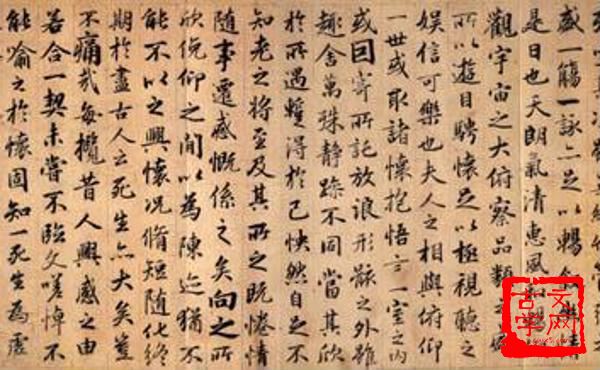 盛一觴一詠亦足以暢敘幽情
是日也天朗氣清惠風和暢
觀宇宙之大俯察品類之盛
所以遊目騁懷足以極視聽之
娛信可樂也夫人之相與俯仰
一世或取諸懷抱悟言一室之內
或因寄所託放浪形骸之外雖
趣舍萬殊靜躁不同當其欣
於所遇蹔得於己怏然自足不
知老之將至及其所之既惓情
隨事遷感慨係之矣向之所
欣俛仰之間以為陳迹猶不
能不以之興懷況脩短隨化終
期於盡古人云死生亦大矣豈
不痛哉每攬昔人興感之由
若合一契未嘗不臨文嗟悼不
能喻之於懷固知一死生為虛
古文
学网